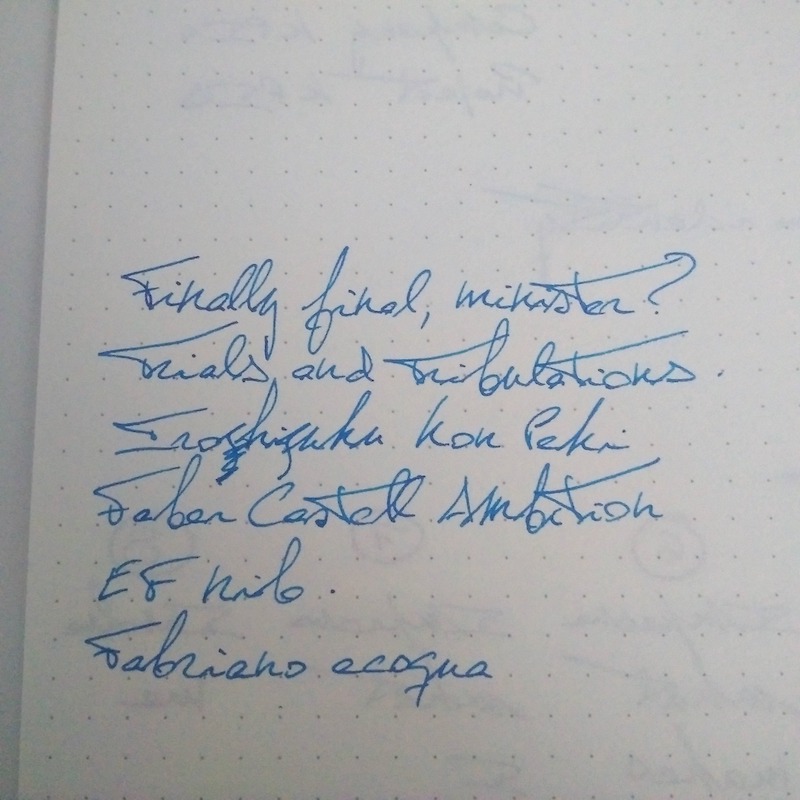 Finally final, minister?
Trials and tribulations.
Iroshizuku Kon Peki
Faber Castell Ambition
EF nib.
Fabriano ecoqua